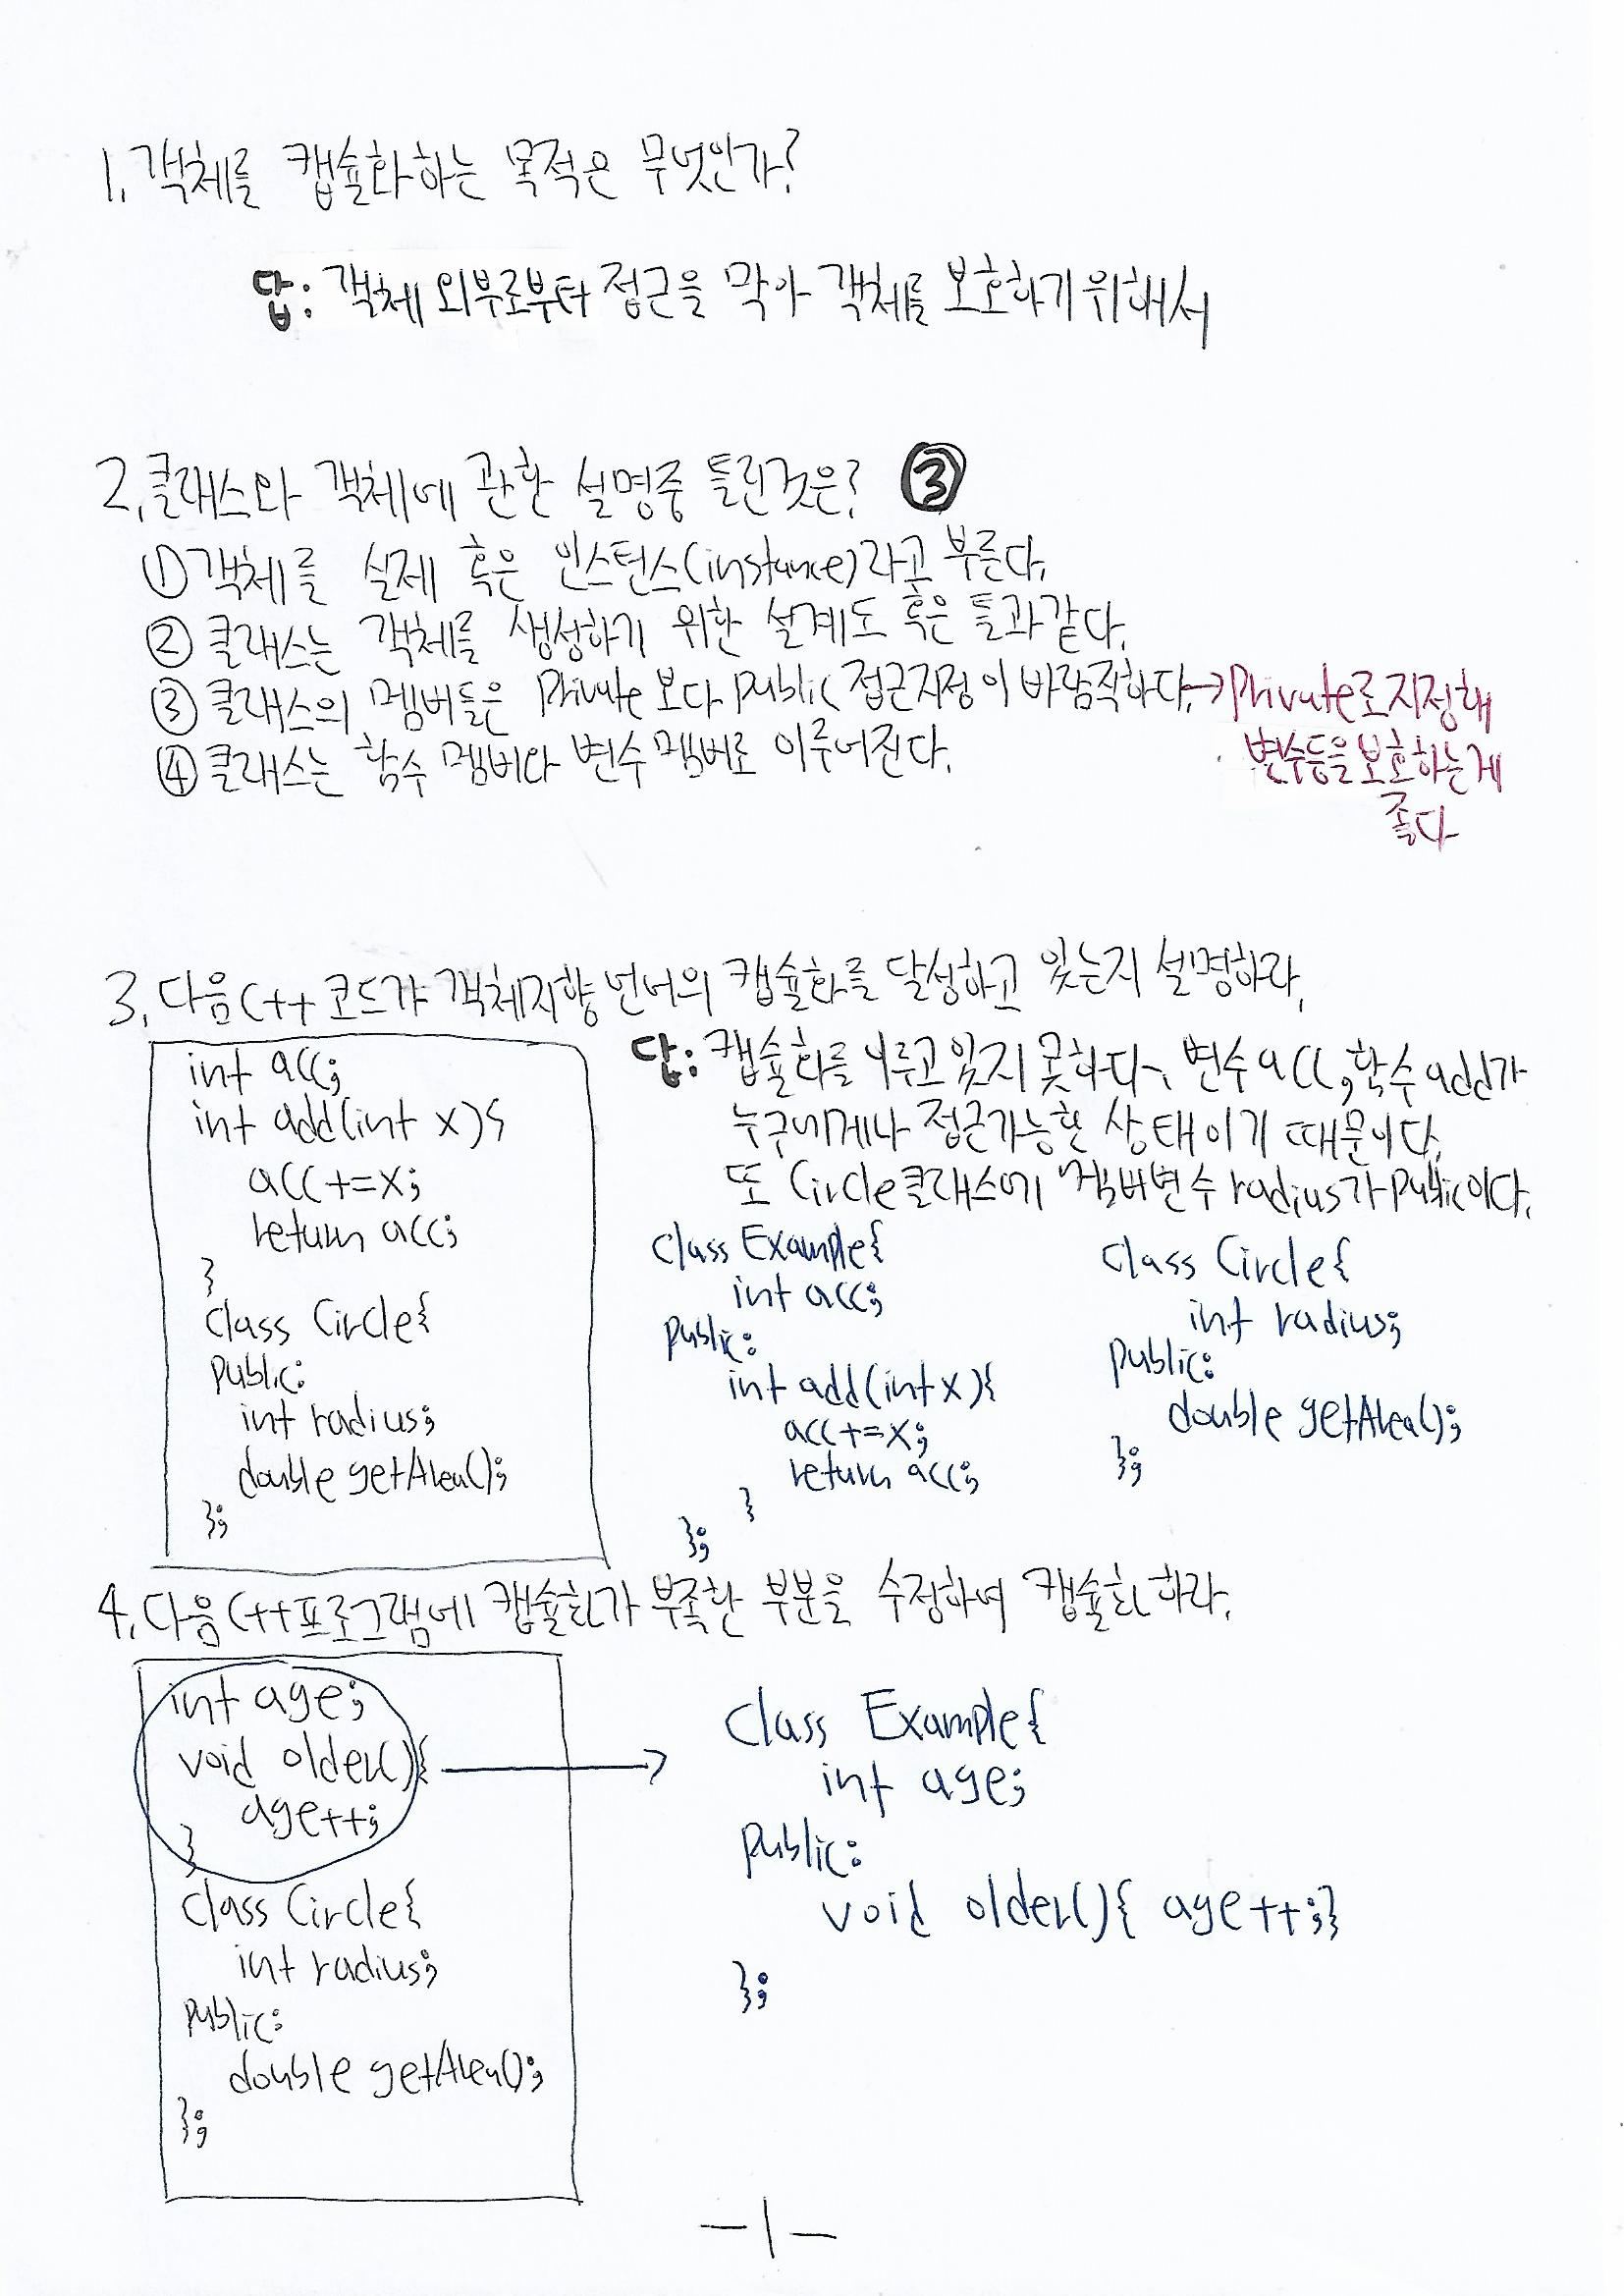 1. 객체를 캡슐화하는 목적은 무엇인가?
답: 객체 외부로부터 접근을 막아 객체를 보호하기 위해서
2. 클래스와 객체에 관한 설명중 틀린것은? ③
① 객체를 실제 혹은 인스턴스(instance)라고 부른다.
② 클래스는 객체를 생성하기 위한 설계도 혹은 틀과 같다.
③ 클래스의 멤버들은 Private 보다 Public 접근지정이 바람직하다. → Private로 지정해
변수등을 보호하는게
좋다
④ 클래스는 함수 멤버와 변수 멤버로 이루어진다.
3. 다음 C++ 코드가 객체지향 언어의 캡슐화를 달성하고 있는지 설명하라.
int acc;
int add(int x){
acc+=x;
return acc;
}
class Circle{
Public:
int radius;
double getArea();
};
답: 캡슐화를 이루고 있지 못하다. 변수 acc, 함수 add가
누구에게나 접근가능한 상태이기 때문이다.
또 Circle클래스에 멤버변수 radius가 Public이다.
class Example{
int acc;
Public:
int add(int x){
acc+=x;
return acc;
}
};
class Circle{
int radius;
Public:
double getArea();
};
4. 다음 C++프로그램에 캡슐화가 부족한 부분을 수정하여 캡슐화하라.
int age;
void older(){
age++;
}
class Circle{
int radius;
Public:
double getArea();
};
→
Class Example{
int age;
Public:
void older(){ age++;}
};
-1-